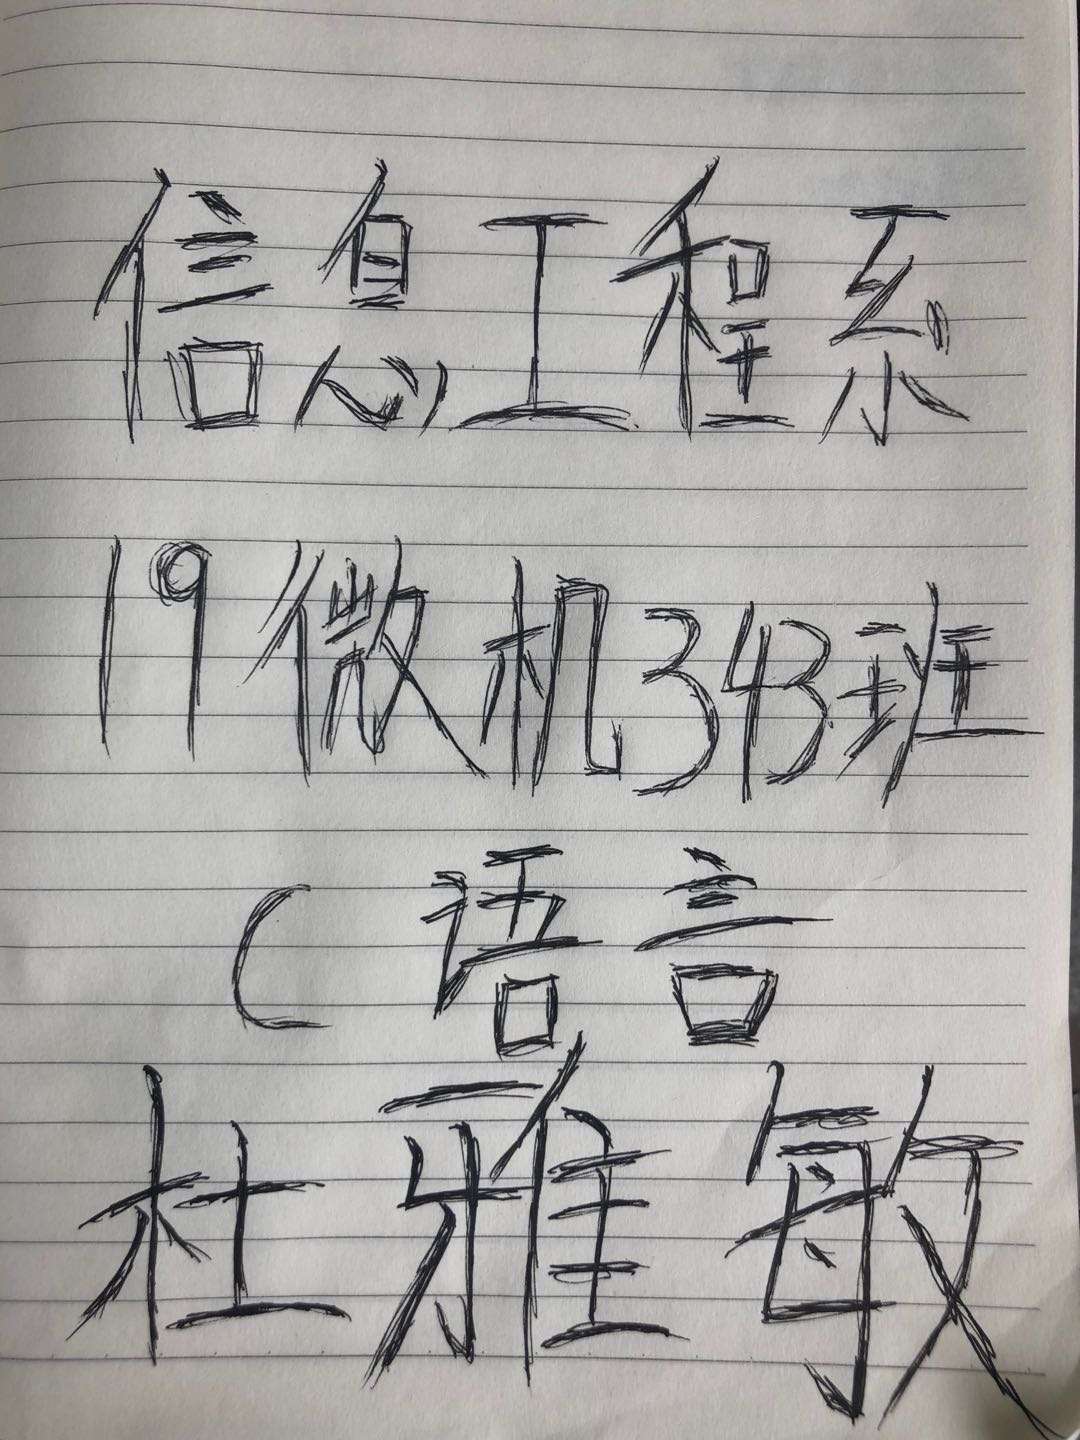 信息工程系
19微机343班
C语言
杜雅敏